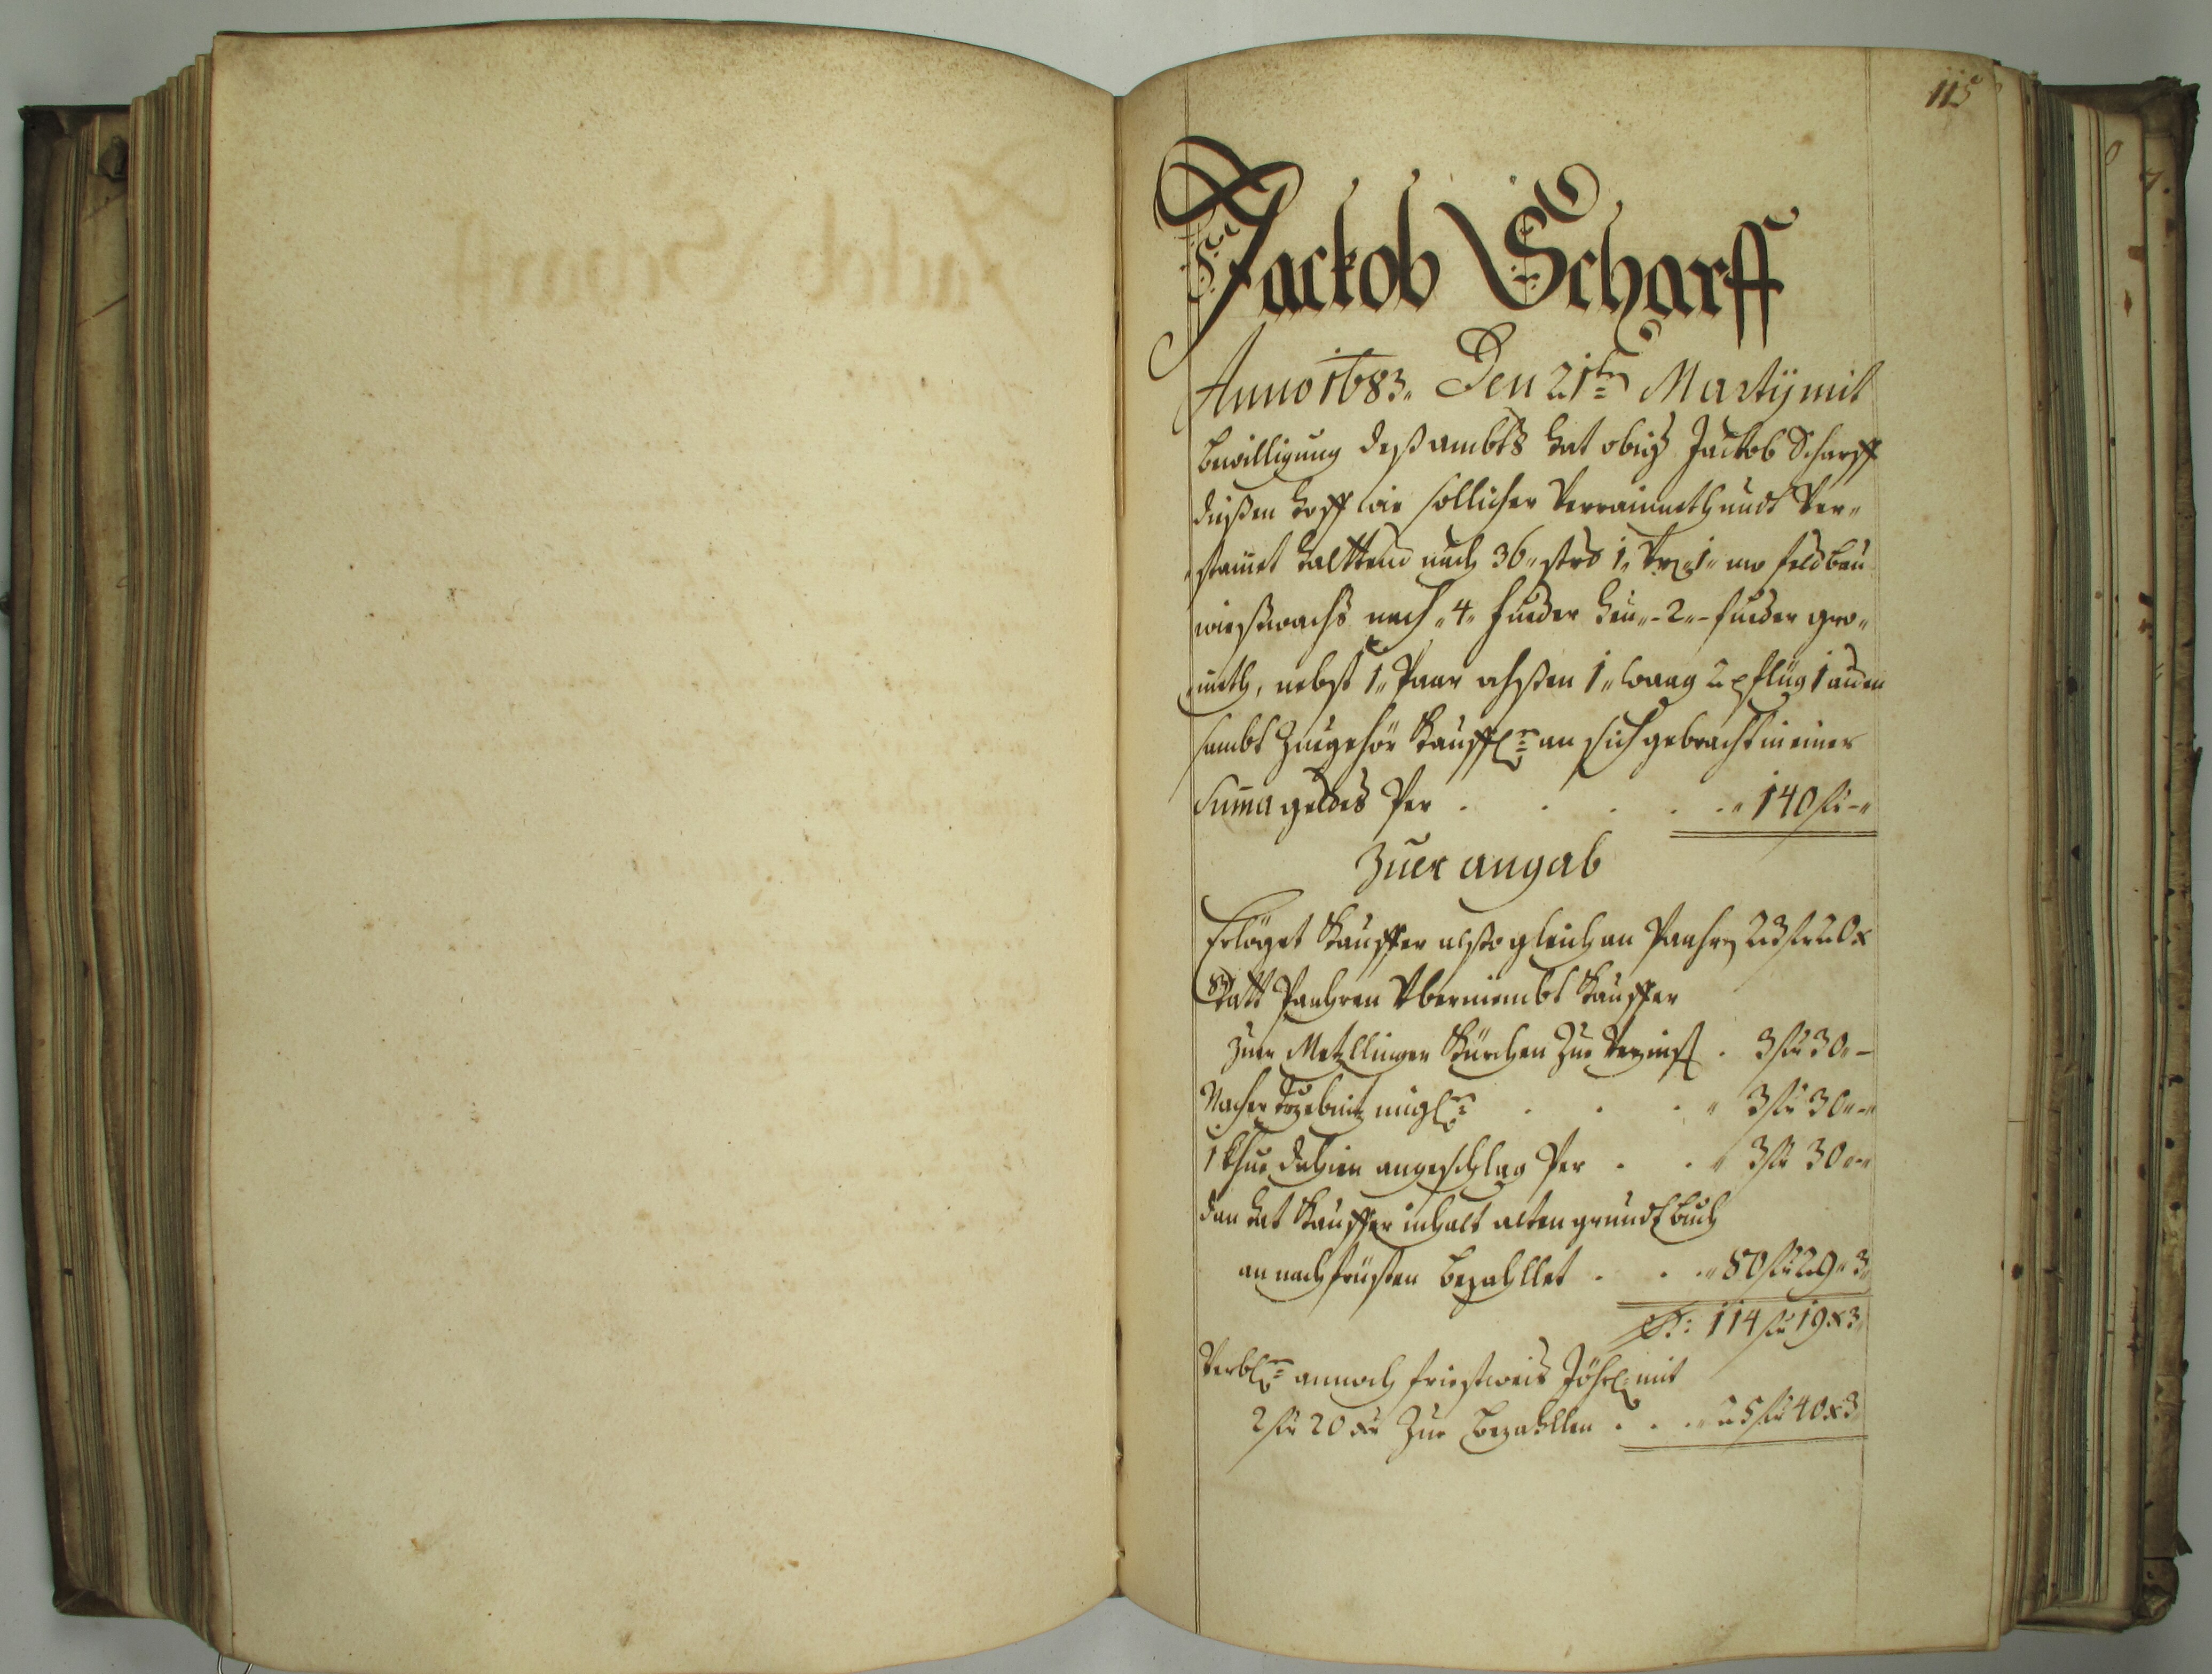 115
Jackob Scharff
Anno 1683. Den 21ten Martij mit
bewilligung deß ambts hat obig Jackob Scharff
dießen hoff wie sollicher verrainneth undt ver„
stainet halttend nach 36„ strd 1„ vrl 1„ mo feldbau
wießwachs nach „4„ fueder heu„-2„-fueder gro„
meth, nebst 1„ Paar ochßen 1„ waag 2 pflüg 1 aiden
sambt Zuegehör Kauffl: an sich gebracht in einer
Suma geldes Per . . . . „ 140 fl -„
Zuer angab
Erlöget Kauffer alßo gleich an Paaren 23 fl 20 x
Statt Paahren Überniembt Kauffer
Zuer Metzllinger Kürchen Zue Verzinß . 3 fl 30„ -
Nacher Trzebnitz . . . „ 3 fl 30„-„
1 Khue dahien angeschlag Per . . „ 3 fl 30„-„
dan hat Kauffer inhalt alten grundtbuch
an nachfrüsten bezahllet . . „ 80 fl 29„ 3„
S: 114 fl 19 x 3„
Verbl: annoch friestweis Jöhrl: mit
2 fl 20 xr Zue bezahllen . . „ 25 fl 40 x 3„